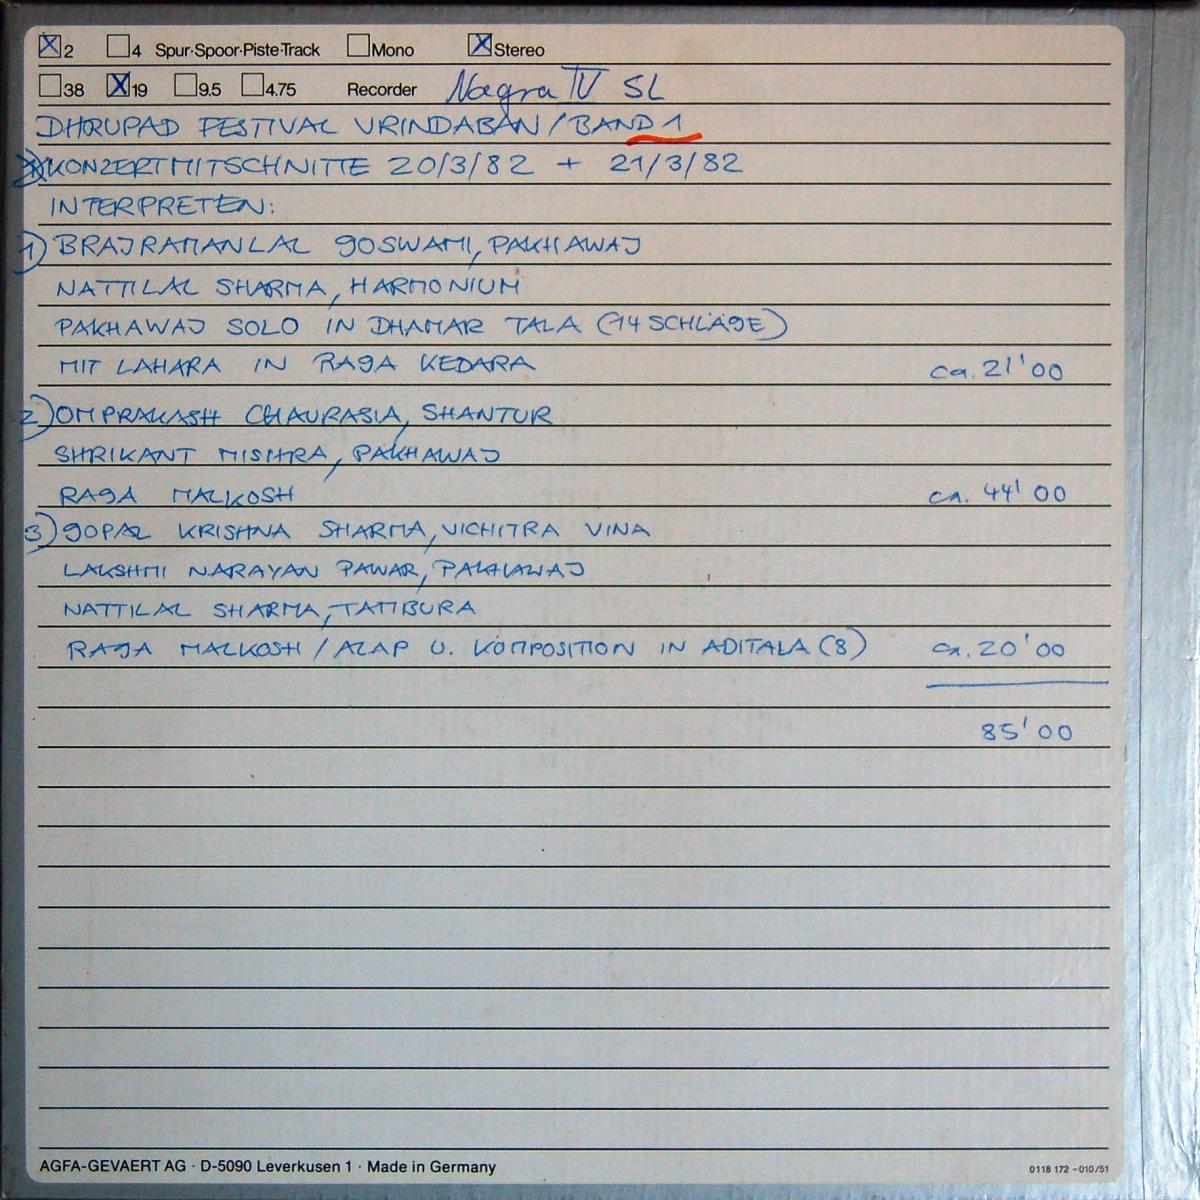 ☒2 ☐4 Spur·Spoor·Piste·Track ☐Mono ☒Stereo
☐38 ☒19 ☐9.5 ☐4.75 Recorder Nagra IV SL
DHRUPAD FESTIVAL VRINDABAN / BAND 1
KONZERTMITSCHNITTE 20/3/82 + 21/3/82
INTERPRETEN:
1) BRAJRAMANLAL GOSWAMI, PAKHAWAJ
NATTILAL SHARMA, HARMONIUM
PAKHAWAJ SOLO IN DHAMAR TALA (14 SCHLÄGE)
MIT LAHARA IN RAGA KEDARA ca. 21'00
2) OMPRAKASH CHAURASIA, SHANTUR
SHRIKANT MISHRA, PAKHAWAJ
RAGA MALKOSH ca. 44'00
3) GOPAL KRISHNA SHARMA, VICHITRA VINA
LAKSHMI NARAYAN PAWAR, PAKHAWAJ
NATTILAL SHARMA, TAMBURA
RAGA MALKOSH / ALAP U. KOMPOSITION IN ADITALA (8) ca. 20'00
85'00
AGFA-GEVAERT AG · D-5090 Leverkusen 1 · Made in Germany
0118 172 -010/51